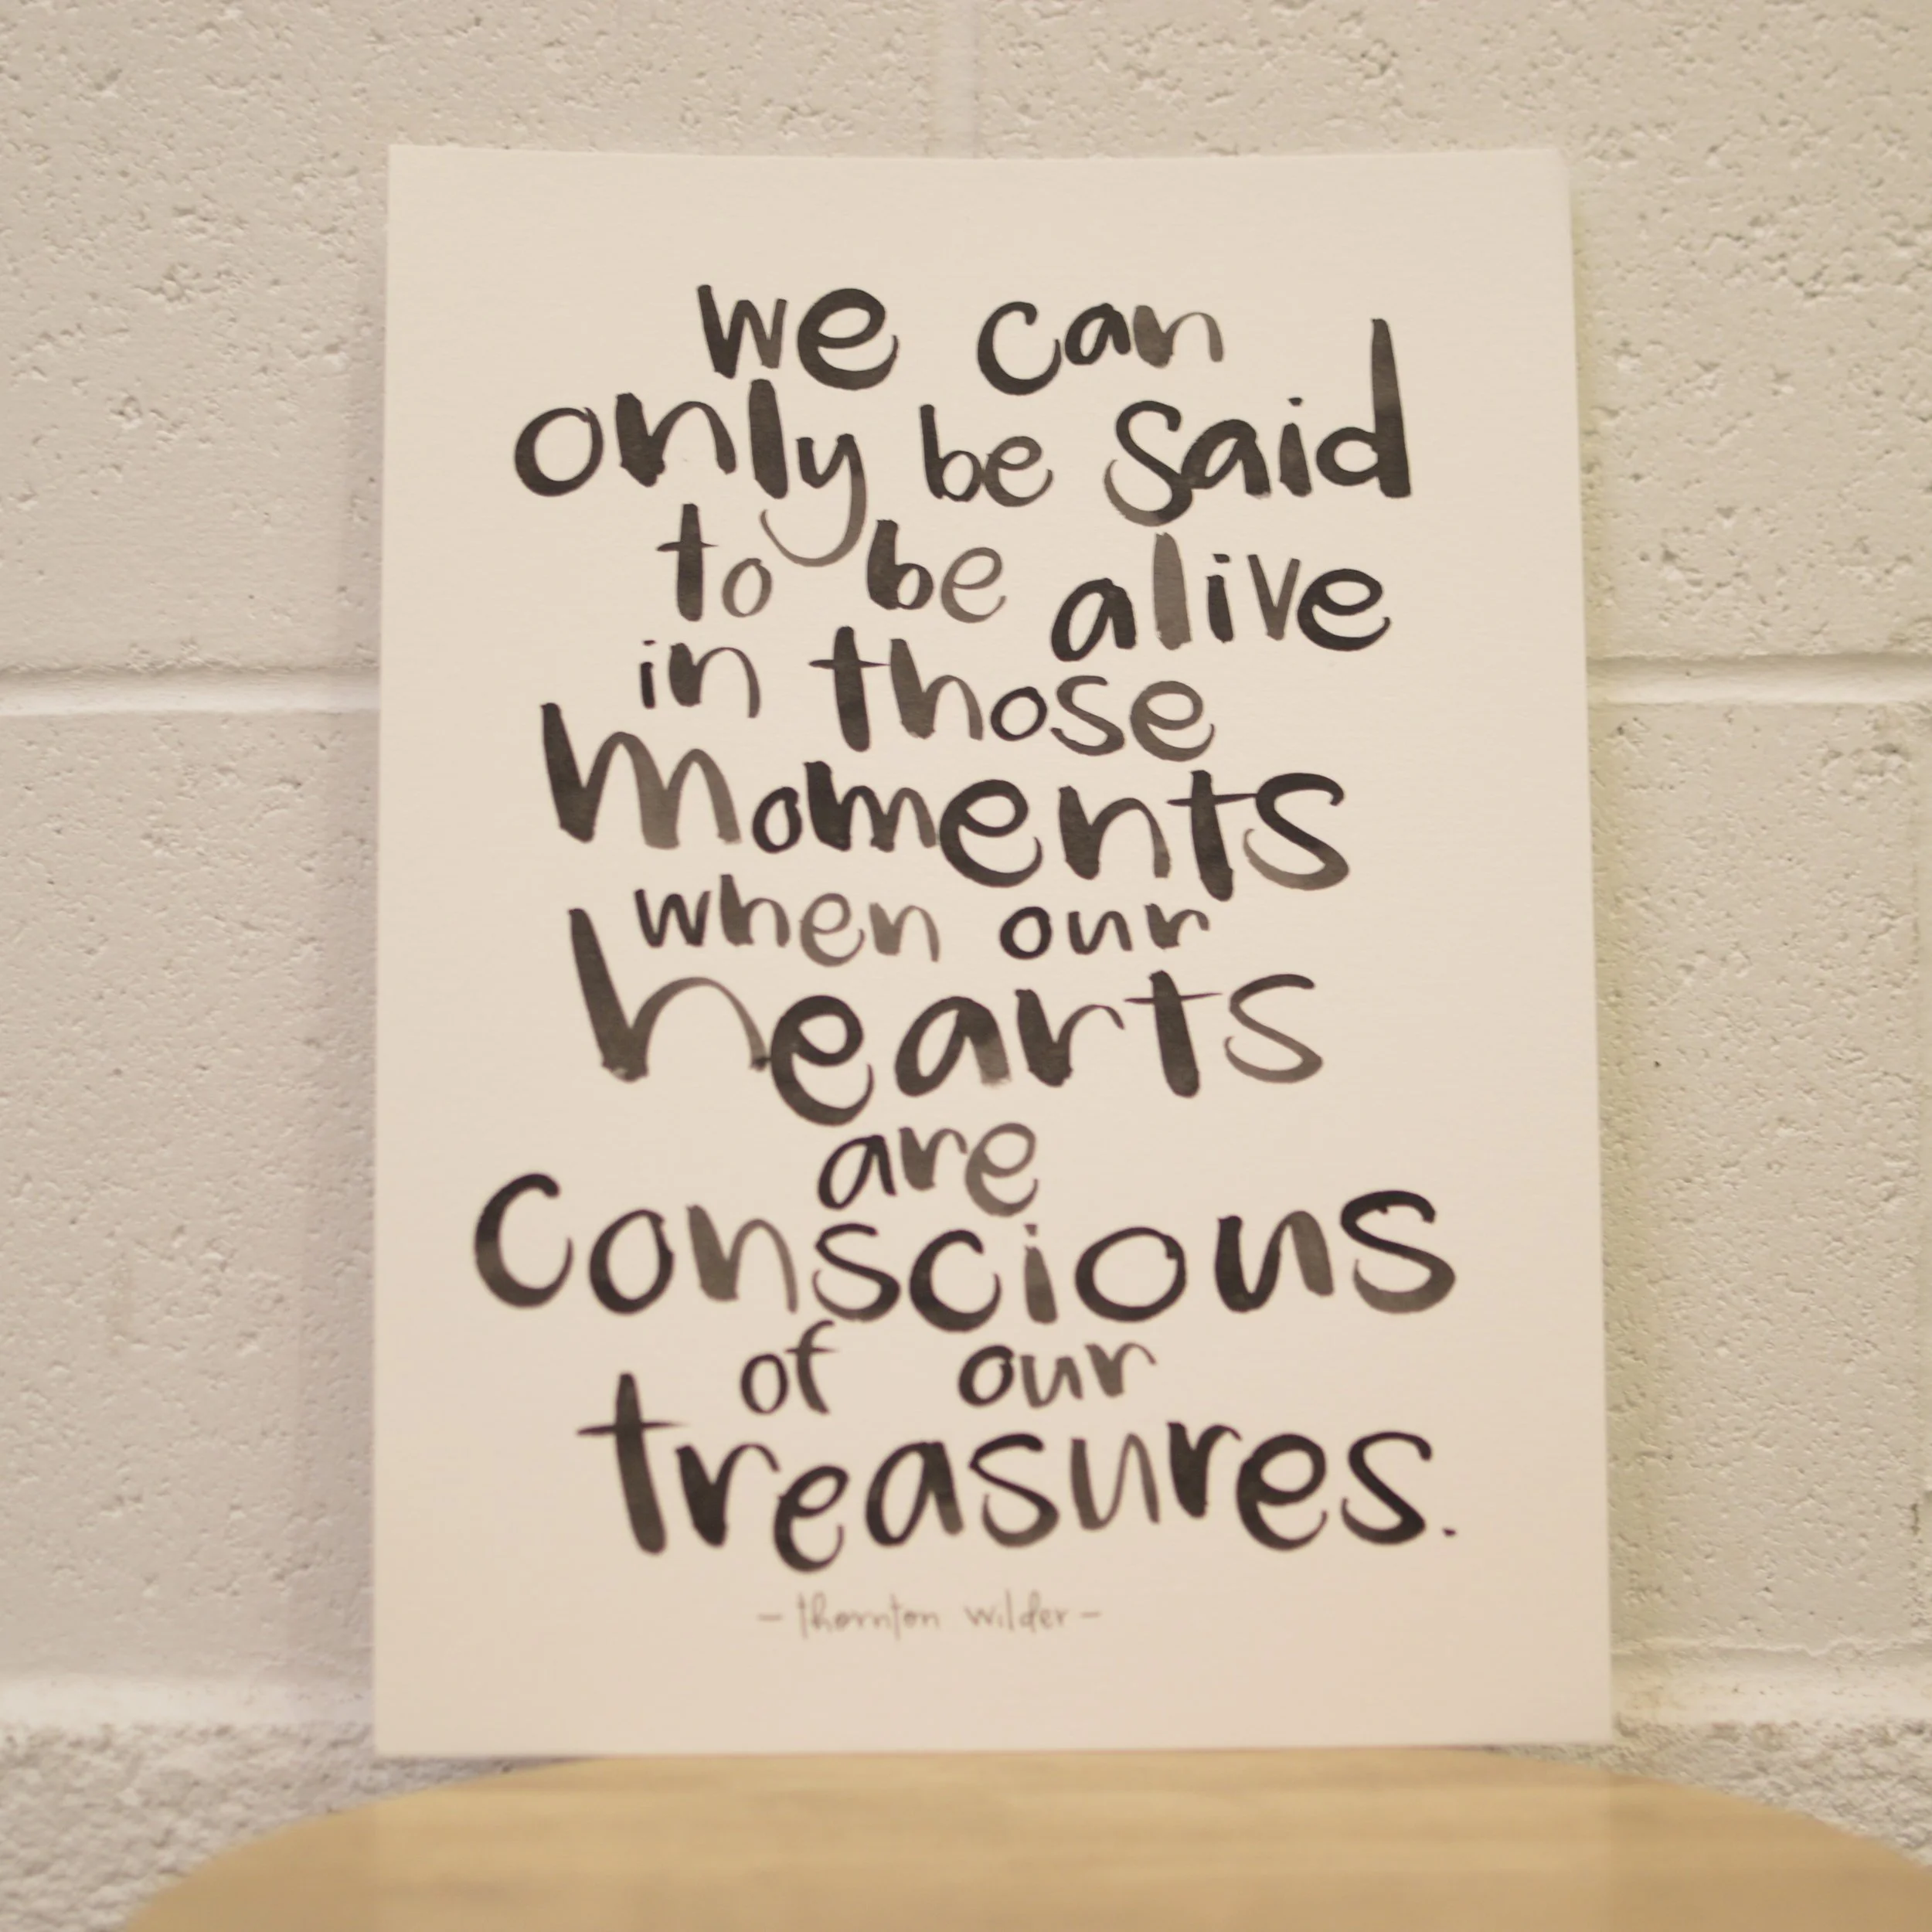 we can
only be said
to be alive
in those
moments
when our
hearts
are
conscious
of our
treasures.
- thornton wilder -